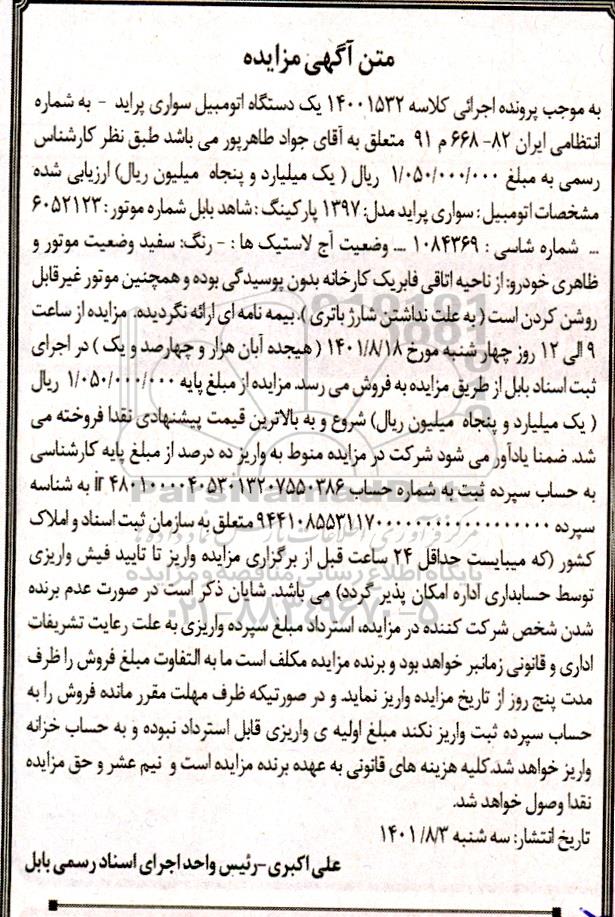 متن آگهی مزایده
به موجب پرونده اجرائی کلاسه ۱۴۰۰۱۵۳۲ یک دستگاه اتومبیل سواری پراید - به شماره
انتظامی ایران ۸۲- ۶۶۸ م ۹۱ متعلق به آقای جواد طاهرپور می باشد طبق نظر کارشناس
رسمی به مبلغ ۱/۰۵۰/۰۰۰/۰۰۰ ریال ( یک میلیارد و پنجاه میلیون ریال) ارزیابی شده
مشخصات اتومبیل : سواری پراید مدل: ۱۳۹۷ پارکینگ : شاهد بابل شماره موتور : ۶۰۵۲۱۲۳
... شماره شاسی : ۱۰۸۴۳۶۹ .... وضعیت آج لاستیک ها : - رنگ: سفید وضعیت موتور و
ظاهری خودرو: از ناحیه اتاقی فابریک کارخانه بدون پوسیدگی بوده و همچنین موتور غیرقابل
روشن کردن است ( به علت نداشتن شارژ باتری ). بیمه نامه ای ارائه نگردیده. مزایده از ساعت
۹ الی ۱۲ روز چهار شنبه مورخ ۱۴۰۱/۸/۱۸ ( هیجده آبان هزار و چهارصد و یک ) در اجرای
ثبت اسناد بابل از طریق مزایده به فروش می رسد. مزایده از مبلغ پایه ۱/۰۵۰/۰۰۰/۰۰۰ ریال
( یک میلیارد و پنجاه میلیون ریال) شروع و به بالاترین قیمت پیشنهادی نقدا فروخته می
شد. ضمنا یادآور می شود شرکت در مزایده منوط به واریز ده درصد از مبلغ پایه کارشناسی
به حساب سپرده ثبت به شماره حساب ir ۴۸۰۱۰۰۰۰۴۰۵۳۰۱۳۲۰۷۵۵۰۳۸۶ به شناسه
سپرده متعلق به سازمان ثبت اسناد و املاک
کشور (که میبایست حداقل ۲۴ ساعت قبل از برگزاری مزایده واریز تا تایید فیش واریزی
توسط حسابداری اداره امکان پذیر گردد) می باشد. شایان ذکر است در صورت عدم برنده
شدن شخص شرکت کننده در مزایده، استرداد مبلغ سپرده واریزی به علت رعایت تشریفات
اداری و قانونی زمانبر خواهد بود و برنده مزایده مکلف است ما به التفاوت مبلغ فروش را ظرف
مدت پنج روز از تاریخ مزایده واریز نماید. و در صورتیکه ظرف مهلت مقرر مانده فروش را به
حساب سپرده ثبت واریز نکند مبلغ اولیه ی واریزی قابل استرداد نبوده و به حساب خزانه
واریز خواهد شد.کلیه هزینه های قانونی به عهده برنده مزایده است و نیم عشر و حق مزایده
نقدا وصول خواهد شد.
تاریخ انتشار: سه شنبه ۱۴۰۱/۸/۳
علی اکبری -رئیس واحد اجرای اسناد رسمی بابل